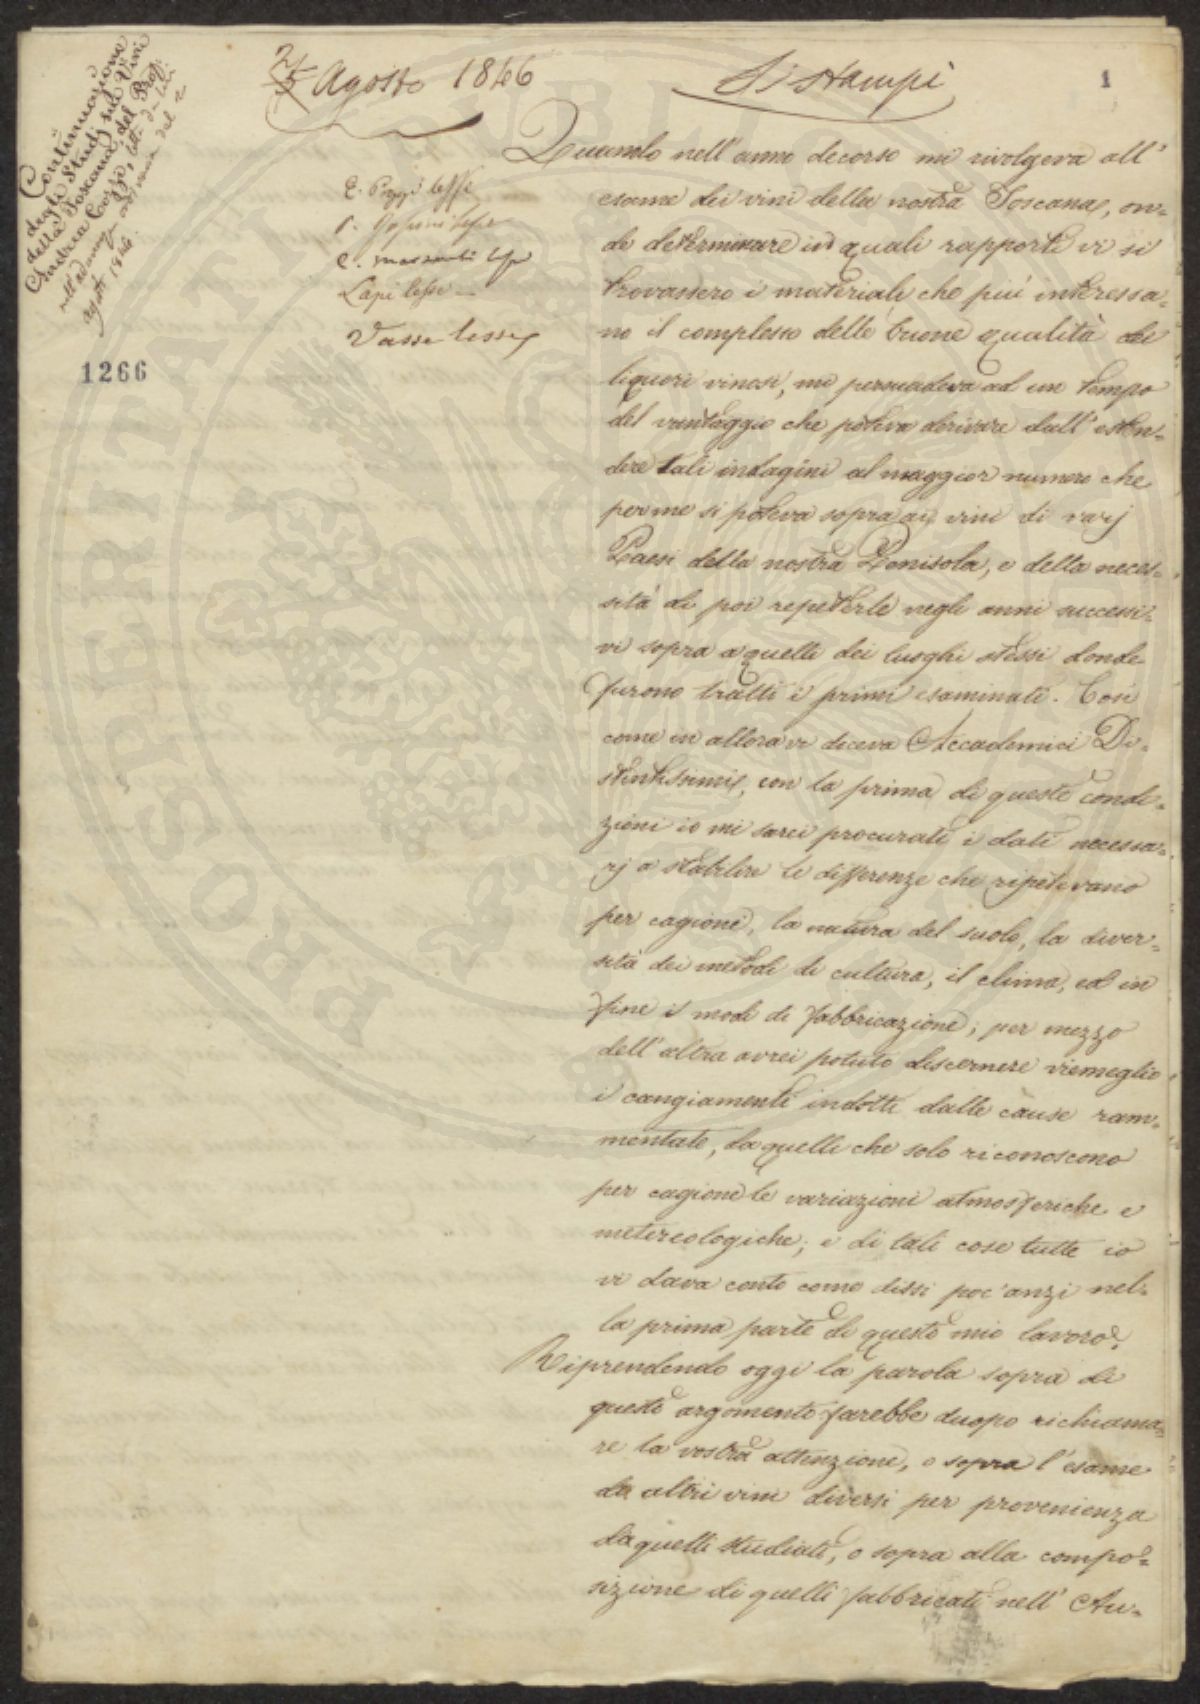 Continuazione
degli Studi sui Vini
della Toscana del Prof.
Andrea Cozzi, letti da lui
nell'adunanza ordinaria del 2
agosto 1846.
1266
2 Agosto 1846
Si stampi
1
E. Poggi lesse
lesse
C. lesse
Lapi lesse
Vasse lesse
Quando nell'anno decorso mi rivolgeva all'
esame dei vini della nostra Toscana, on-
de determinare in quali rapporti vi si
trovassero i materiali che più interessa-
no il complesso delle buone qualità dei
liquori vinosi, mi persuadeva ad un tempo
del vantaggio che poteva derivare dall'esten-
dere tali indagini al maggior numero che
per me si poteva sopra ai vini di varj
Paesi della nostra Penisola, e della neces-
sità di poi repeterle negli anni successi-
vi sopra a quelli dei luoghi stessi donde
furono tratti i primi esaminati. Così
come in allora vi diceva Accademici Di-
stintissimi, con la prima di queste condi-
zioni io mi sarei procurati i dati necessa-
rj a stabilire le differenze che ripetevano
per cagione, la natura del suolo, la diver-
sità dei metodi di cultura, il clima, ed in
fine il modo di fabbricazione; per mezzo
dell'altra avrei potuto discernere viemeglio
i cangiamenti indotti dalle cause ram-
mentate, da quelli che solo riconoscono
per cagione le variazioni atmosferiche e
metereologiche; e di tali cose tutte io
vi dava conto come dissi poc'anzi nel-
la prima parte di questo mio lavoro.
Riprendendo oggi la parola sopra di
questo argomento farebbe duopo richiama-
re la vostra attenzione, o sopra l'esame
di altri vini diversi per provenienza
da quelli studiati, o sopra alla compo-
sizione di quelli fabbricati nell'Au-